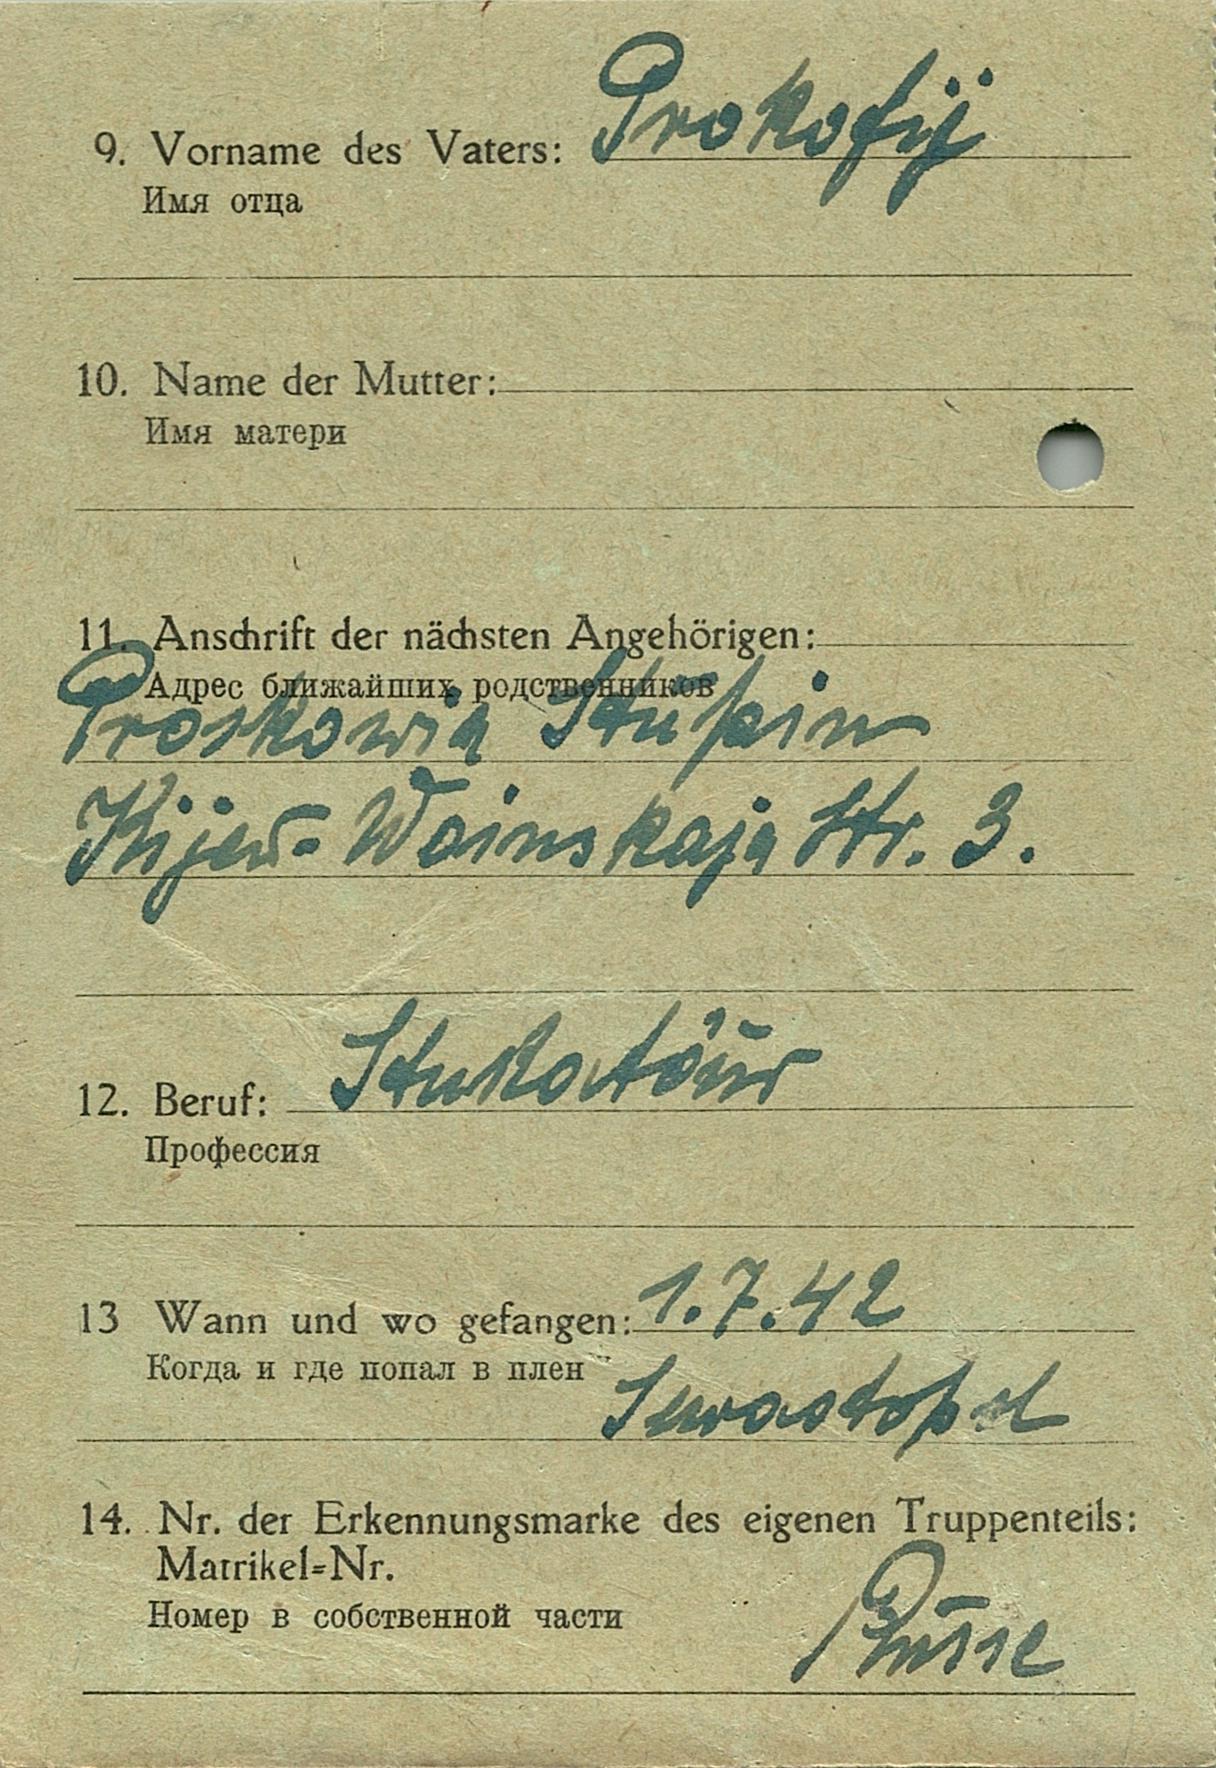 9. Vorname des Vaters: Prokofij
Имя отца
10. Name der Mutter:
Имя матери
11. Anschrift der nächsten Angehörigen:
Адрес ближайших родственников
Proskowia Stupin
Kijew- Woinskaja Str. 3.
12. Beruf: Stukatöur
Профессия
13 Wann und wo gefangen: 1.7.42
Когда и где попал в плен
Sewastopol
14. Nr. der Erkennungsmarke des eigenen Truppenteils:
Matrikel=Nr.
Номер в собственной части
Russe